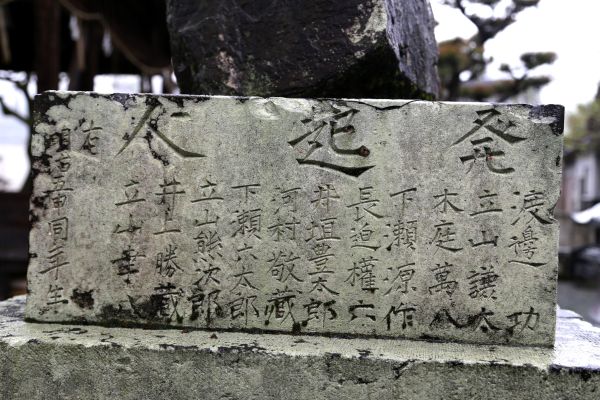 発起人
渡邊功
立山謙太
木庭萬八
下瀬源作
長迫權六
井垣豊太郎
河村敬蔵
下瀬六太郎
立山熊次郎
井上勝蔵
立山幸八
右
同年生